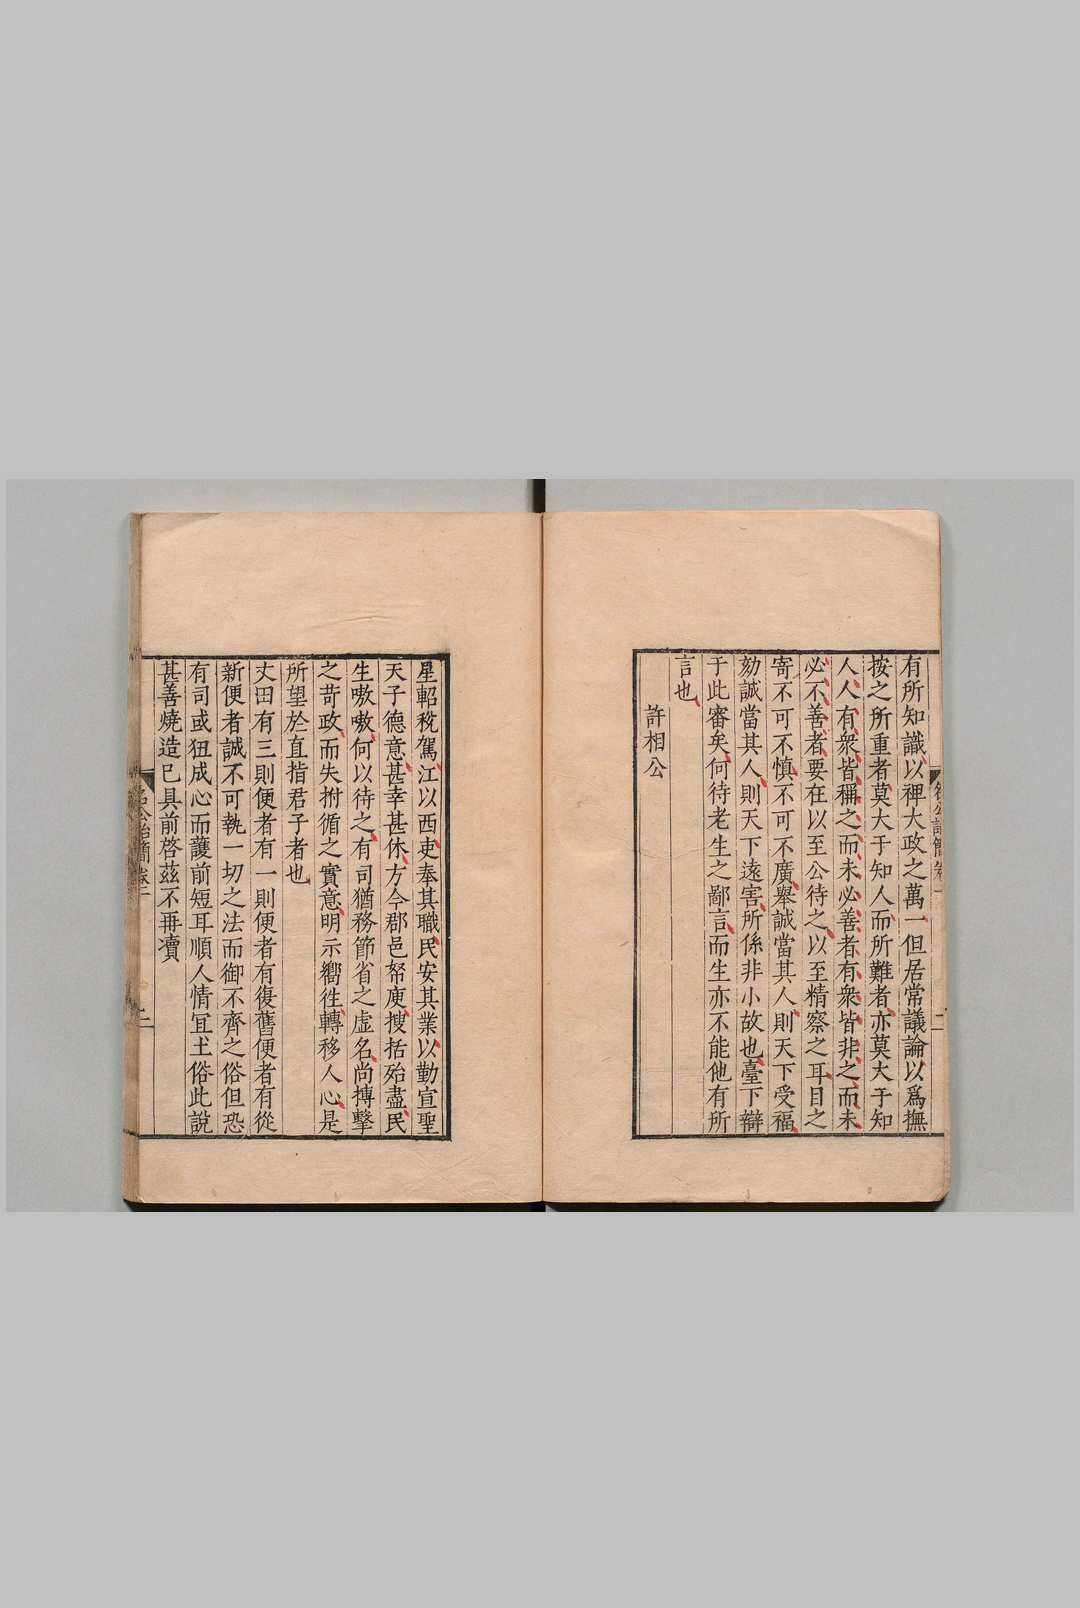 有所知識以裨大政之萬一但居常議論以爲撫
按之所重者莫大于知人而所難者亦莫大于知
人人有衆皆稱之而未必善者有衆皆非之而未
必不善者要在以至公待之以至精察之耳目之
寄不可不慎不可不廣舉誠當其人則天下受福
劾誠當其人則天下遠害所係非小故也臺下辯
于此審矣何待老生之鄙言而生亦不能他有所
言也
許相公
星軺稅駕江以西吏奉其職民安其業以勤宣聖
天子德意甚幸甚休方今郡邑帑庾搜括殆盡民
生嗷嗷何以待之有司猶務節省之虛名尚搏擊
之苛政而失拊循之實意明示嚮徃轉移人心是
所望於直指君子者也
丈田有三則便者有一則便者有復舊便者有從
新便者誠不可執一切之法而御不齊之俗但恐
有司或狃成心而護前短耳順人情宜土俗此說
甚善燒造已具前啓茲不再瀆
二
二